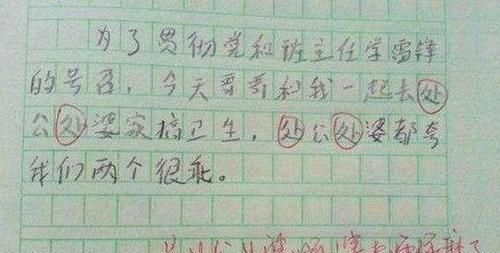 为了贯彻党和班主任学雷锋
的号召，今天哥哥和我一起去处
公处婆家搞卫生，处公处婆都夸
我们两个很乖。